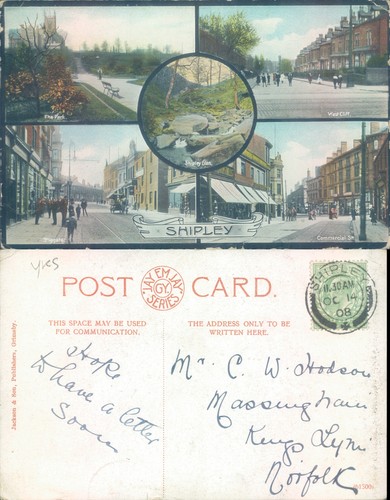 The Park
West Cliff
Shipley Glen
SHIPLEY
Commercial St
Yks
POST CARD.
JAY EM JAY
SERIES
THIS SPACE MAY BE USED
FOR COMMUNICATION.
THE ADDRESS ONLY TO BE
WRITTEN HERE.
SHIPLEY
11.30 AM
OC 14
08
Jackson & Son, Publishers, Grimsby.
Hope
to have a letter
Soon
Mr. C. W. Hodson
Massingham
Kings Lynn
Norfolk